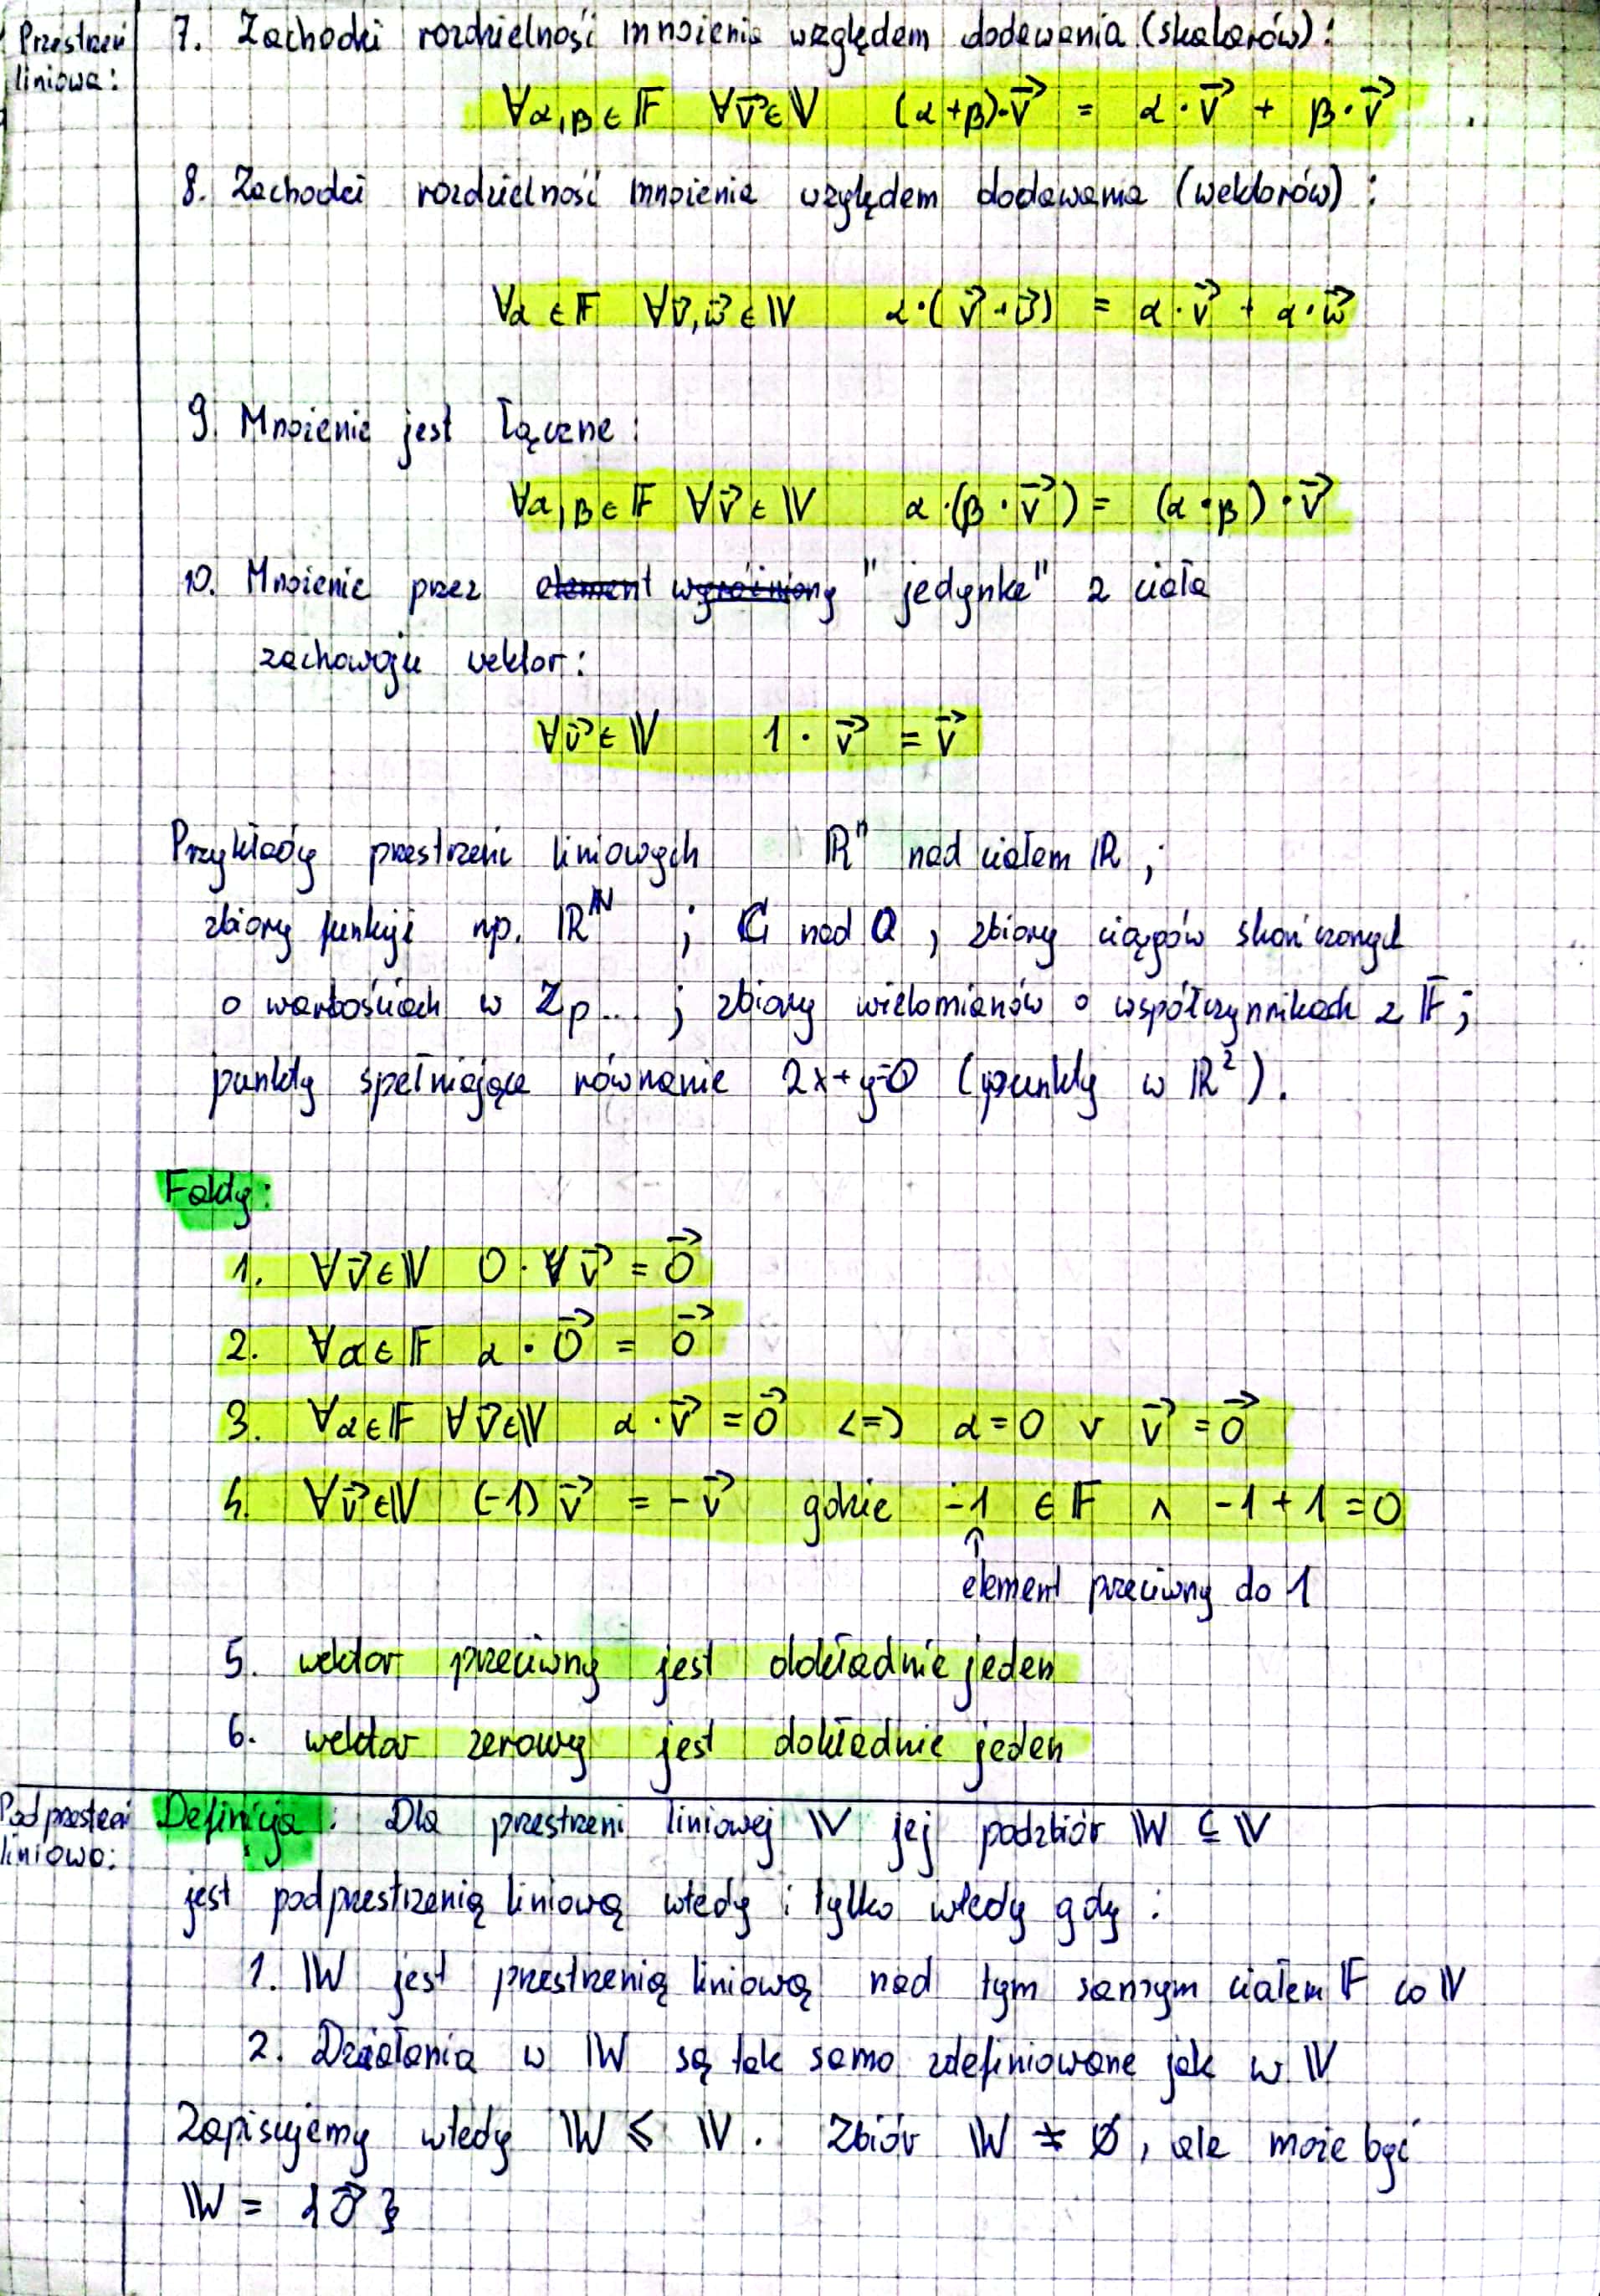 Przestrzeń liniowa:
7. Zachodzi rozdzielność mnożenia względem dodawania (skalarów):
∀α,β ∈ 𝔽 ∀v⃗ ∈ 𝕍 (α+β)·v⃗ = α·v⃗ + β·v⃗
8. Zachodzi rozdzielność mnożenia względem dodawania (wektorów):
∀α ∈ 𝔽 ∀v⃗,w⃗ ∈ 𝕍 α·(v⃗+w⃗) = α·v⃗ + α·w⃗
9. Mnożenie jest łączne:
∀α,β ∈ 𝔽 ∀v⃗ ∈ 𝕍 α·(β·v⃗) = (α·β)·v⃗
10. Mnożenie przez "jedynkę" z ciała
zachowuje wektor:
∀v⃗ ∈ 𝕍 1·v⃗ = v⃗
Przykłady przestrzeni liniowych ℝⁿ nad ciałem ℝ ;
zbiory funkcji np. ℝ^ℕ ; ℂ nad ℚ , zbiory ciągów skończonych
o wartościach w ℤp... ; zbiory wielomianów o współczynnikach z 𝔽 ;
punkty spełniające równanie 2x+y=0 (punkty w ℝ²).
Fakty:
1. ∀v⃗ ∈ 𝕍 0·v⃗ = 0⃗
2. ∀α ∈ 𝔽 α·0⃗ = 0⃗
3. ∀α ∈ 𝔽 ∀v⃗ ∈ 𝕍 α·v⃗ = 0⃗ <=> α=0 ∨ v⃗=0⃗
4. ∀v⃗ ∈ 𝕍 (-1)v⃗ = -v⃗ gdzie -1 ∈ 𝔽 ∧ -1+1=0
↑
element przeciwny do 1
5. wektor przeciwny jest dokładnie jeden
6. wektor zerowy jest dokładnie jeden
Podprzestrzeń liniowa:
Definicja: Dla przestrzeni liniowej 𝕍 jej podzbiór 𝕎 ⊆ 𝕍
jest podprzestrzenią liniową wtedy i tylko wtedy gdy :
1. 𝕎 jest przestrzenią liniową nad tym samym ciałem 𝔽 co 𝕍
2. Działania w 𝕎 są tak samo zdefiniowane jak w 𝕍
Zapisujemy wtedy 𝕎 ≤ 𝕍. Zbiór 𝕎 ≠ ∅, ale może być
𝕎 = {0⃗}